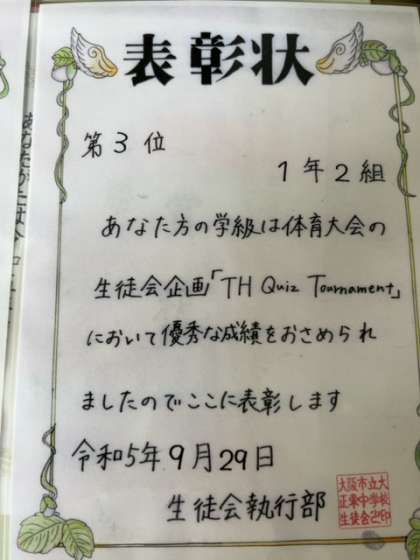 表彰状
第3位
1年2組
あなた方の学級は体育大会の
生徒会企画「TH Quiz Tournament」
において優秀な成績をおさめられ
ましたのでここに表彰します
令和5年9月29日
生徒会執行部
大阪市立大
正東中学校
生徒会之印